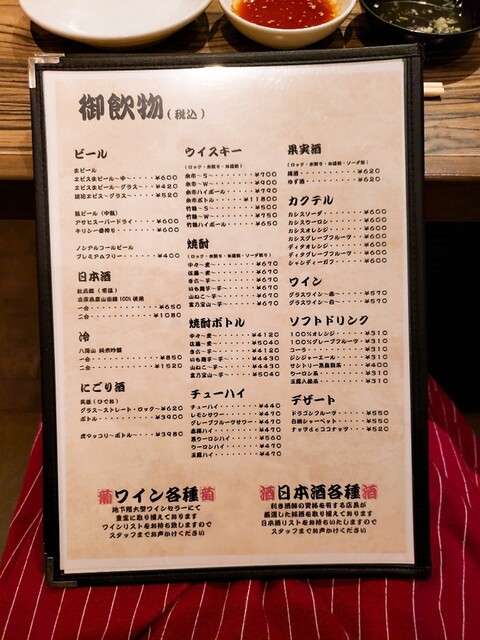 御飲物（税込）
ビール
生ビール
エビス生ビール〜中〜・・・・¥600
エビス生ビール〜グラス〜・・・¥420
琥珀エビス〜グラス〜・・・・¥520
瓶ビール（中瓶）
アサヒスーパードライ・・・・¥600
キリン一番搾り・・・・・・¥600
ノンアルコールビール
プレミアムフリー・・・・・¥400
日本酒
兵庫県産山田錦100％使用
一合・・・・・・・・¥650
二合・・・・・・・・¥1080
冷
八海山 純米吟醸
一合・・・・・・・・¥850
二合・・・・・・・・¥1520
にごり酒
グラス〜ストレート・ロック〜¥620
ボトル・・・・・・・¥3900
虎マッコリ〜ボトル〜・・・¥3980
ウイスキー
（ロック・水割り・お湯割）
余市〜S〜・・・・・・¥700
余市〜W〜・・・・・・¥900
余市ハイボール・・・・・¥790
余市ボトル・・・・・・¥11800
竹鶴〜S〜・・・・・・¥500
竹鶴〜W〜・・・・・・¥750
竹鶴ハイボール・・・・・¥650
焼酎
（ロック・水割り・お湯割・ソーダ割り）
中々〜麦〜・・・・・・¥670
佐藤〜麦〜・・・・・・¥670
きろく〜芋〜・・・・・¥670
山ねこ〜芋〜・・・・・¥670
富乃宝山〜芋〜・・・・・¥670
焼酎ボトル
中々〜麦〜・・・・・・¥4120
佐藤〜麦〜・・・・・・¥5040
きろく〜芋〜・・・・・¥4120
山ねこ〜芋〜・・・・・¥4430
富乃宝山〜芋〜・・・・・¥5040
チューハイ
チューハイ・・・・・・¥440
レモンサワー・・・・・¥470
グレープフルーツサワー・・¥470
梅酎ハイ・・・・・・・¥470
黒ウーロンハイ・・・・・¥560
ウーロンハイ・・・・・¥470
玉露ハイ・・・・・・・¥470
果実酒
（ロック・水割り・お湯割・ソーダ割）
梅酒・・・・・・・・¥620
ゆず酒・・・・・・・¥620
カクテル
カシスソーダ・・・・・¥600
カシスウーロン・・・・・¥600
カシスオレンジ・・・・・¥600
カシスグレープフルーツ・・¥600
ディタオレンジ・・・・・¥600
ディタグレープフルーツ・・¥600
シャンディーガフ・・・・¥600
ワイン
グラスワイン〜赤〜・・・¥570
グラスワイン〜白〜・・・¥570
ソフトドリンク
100％オレンジ・・・・・¥310
100％グレープフルーツ・・¥310
コーラ・・・・・・・・¥310
ジンジャーエール・・・・¥310
サントリー黒烏龍茶・・・¥400
ウーロン茶・・・・・・¥310
玉露入緑茶・・・・・・¥310
デザート
ドラゴンフルーツ・・・・¥550
白桃シャーベット・・・・¥550
ナッツdeココナッツ・・・¥520
葡ワイン各種葡
地下階大型ワインセラーにて
豊富に取り揃えております
ワインリストをお持ち致しますので
スタッフまでお声かけください
酒日本酒各種酒
利き酒師の資格を有する店員が
厳選した銘酒を取り揃えております
日本酒リストをお持ちいたしますので
スタッフまでお声かけください